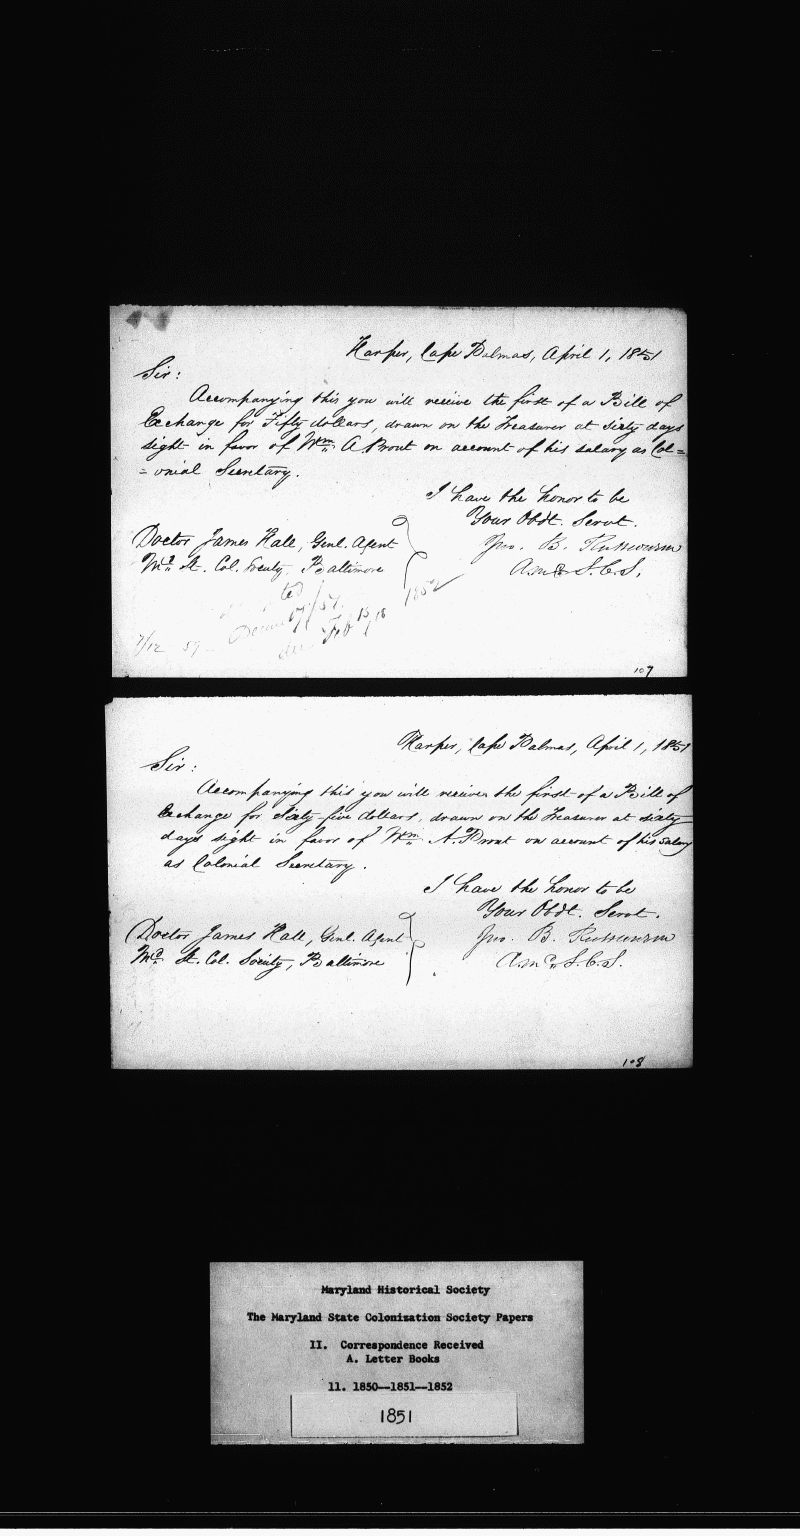 Harper, Cape Palmas, April 1, 1851
Sir:
Accompanying this you will receive the first of a Bill of
Exchange for Fifty dollars, drawn on the Treasurer at sixty days
sight in favor of Wm. A Prout on account of his salary as Col=
=onial Secretary.
I have the honor to be
Your Obdt. Servt.
Jno. B. Russwurm
A. Md. S. C. S.
Doctor James Hall, Genl. Agent
Md. St. Col. Society, Baltimore
1852
Feb 15/18
107
Harper, Cape Palmas, April 1, 1851
Sir:
Accompanying this you will receive the first of a Bill of
Exchange for Sixty-five dollars, drawn on the Treasurer at sixty
days sight in favor of Wm. A. Prout on account of his salary
as Colonial Secretary.
I have the honor to be
Your Obdt. Servt.
Jno. B. Russwurm
A. Md. S. C. S.
Doctor James Hall, Genl. Agent
Md. St. Col. Society, Baltimore
108
Maryland Historical Society
The Maryland State Colonization Society Papers
II. Correspondence Received
A. Letter Books
11. 1850--1851--1852
1851